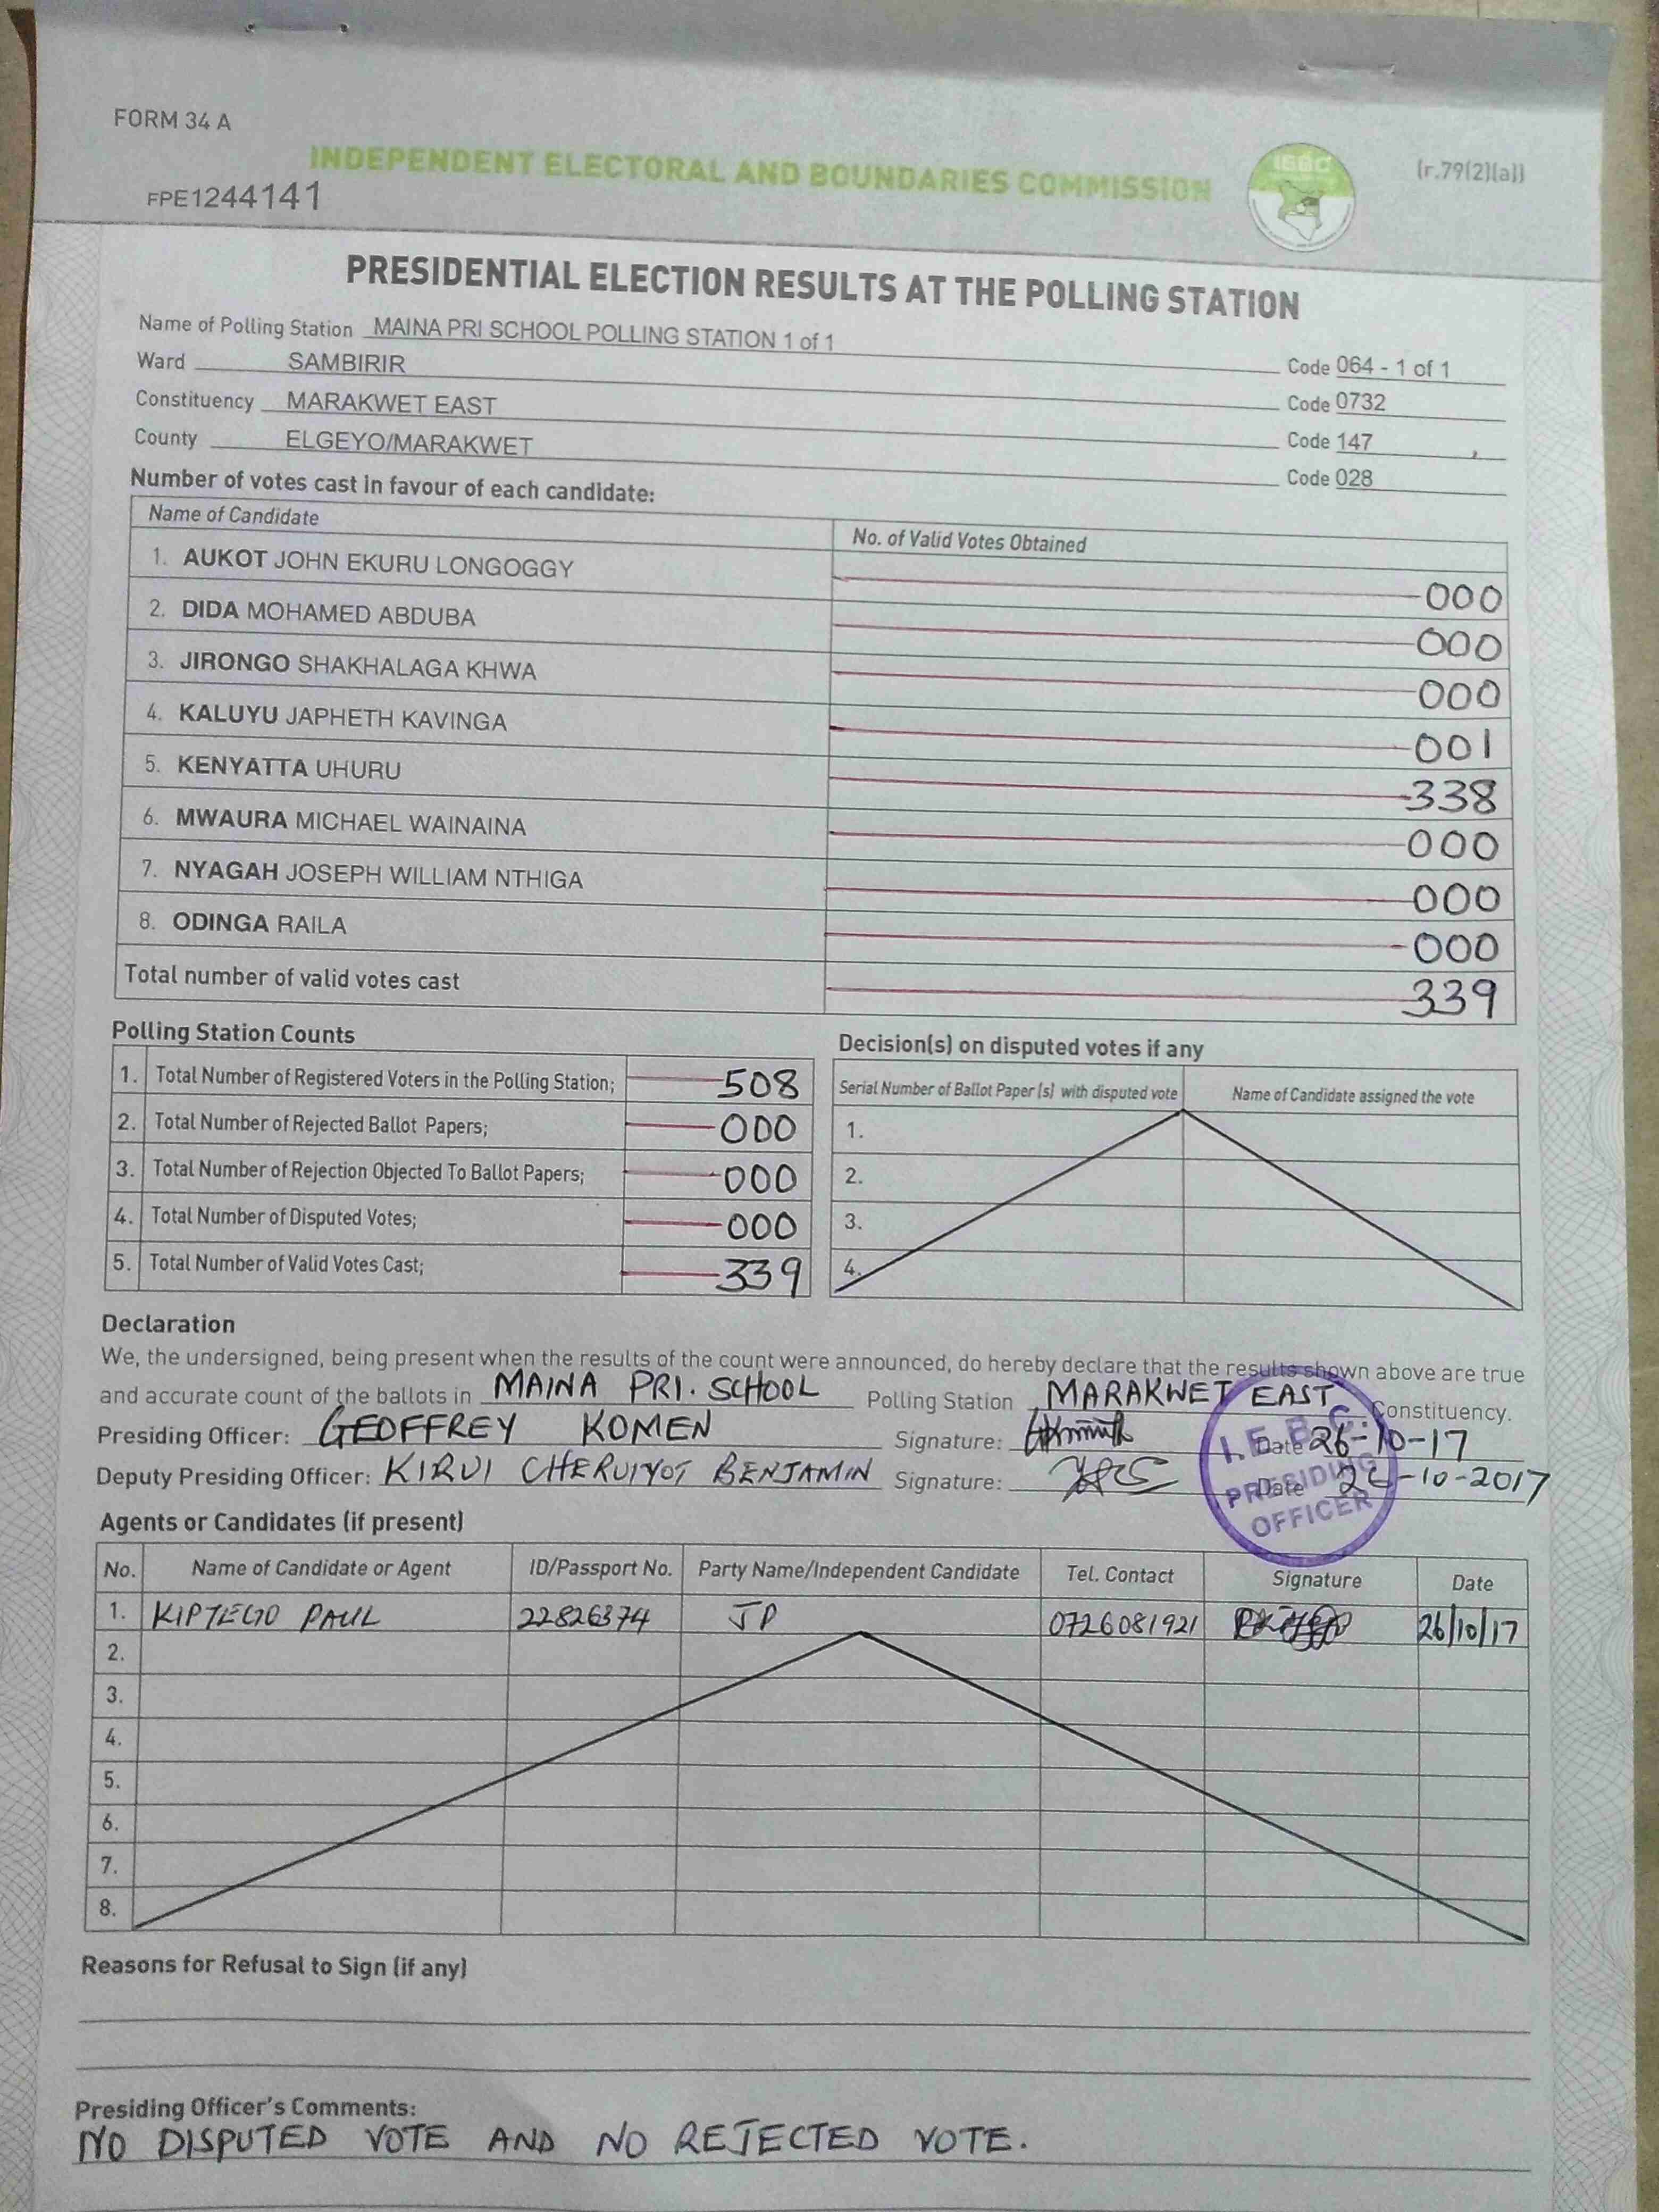 FORM 34 A
INDEPENDENT ELECTORAL AND BOUNDARIES COMMISSION
IEBC
(r.79(2)(a))
FPE1244141
PRESIDENTIAL ELECTION RESULTS AT THE POLLING STATION
Name of Polling Station MAINA PRI SCHOOL POLLING STATION 1 of 1 Code 064 - 1 of 1
Ward SAMBIRIR Code 0732
Constituency MARAKWET EAST Code 147
County ELGEYO/MARAKWET Code 028
Number of votes cast in favour of each candidate:
Name of Candidate No. of Valid Votes Obtained
1. AUKOT JOHN EKURU LONGOGGY 000
2. DIDA MOHAMED ABDUBA 000
3. JIRONGO SHAKHALAGA KHWA 000
4. KALUYU JAPHETH KAVINGA 001
5. KENYATTA UHURU 338
6. MWAURA MICHAEL WAINAINA 000
7. NYAGAH JOSEPH WILLIAM NTHIGA 000
8. ODINGA RAILA 000
Total number of valid votes cast 339
Polling Station Counts
1. Total Number of Registered Voters in the Polling Station; 508
2. Total Number of Rejected Ballot Papers; 000
3. Total Number of Rejection Objected To Ballot Papers; 000
4. Total Number of Disputed Votes; 000
5. Total Number of Valid Votes Cast; 339
Decision(s) on disputed votes if any
Serial Number of Ballot Paper (s) with disputed vote Name of Candidate assigned the vote
1.
2.
3.
4.
Declaration
We, the undersigned, being present when the results of the count were announced, do hereby declare that the results shown above are true
and accurate count of the ballots in MAINA PRI. SCHOOL Polling Station MARAKWET EAST Constituency.
Presiding Officer: GEOFFREY KOMEN Signature: Date 26-10-17
Deputy Presiding Officer: KIRUI CHERUIYOT BENJAMIN Signature: Date 26-10-2017
I.E.B.C.
PRESIDING
OFFICER
Agents or Candidates (if present)
No. Name of Candidate or Agent ID/Passport No. Party Name/Independent Candidate Tel. Contact Signature Date
1. KIPTEGO PAUL 22826374 JP 0726081921 26/10/17
2.
3.
4.
5.
6.
7.
8.
Reasons for Refusal to Sign (if any)
Presiding Officer's Comments:
NO DISPUTED VOTE AND NO REJECTED VOTE.